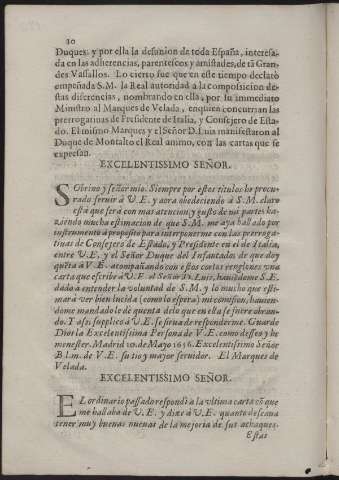 20
Duques: y por ella la desunion de toda España, interesa-
da en las adherencias, parentescos y amistades, de tã Gran-
des Vassallos. Lo cierto fue que en este tiempo declarò
empeñada S.M. la Real autoridad a la composicion de-
stas diferencias, nombrando en ella, por su immediato
Ministro al Marques de Velada, en quien concurrian las
prerrogatiuas de Presidente de Italia, y Consejero de Esta-
do. El mismo Marques y el Señor D. Luis manifestaron al
Duque de Montalto el Real animo, con las cartas que se
expressan.
EXCELENTISSIMO SEÑOR.
SObrino y señor mio. Siempre por estos titulos he procu-
rado seruir à V.E. y aora obedeciendo à S.M. claro
està que serà con mas atencion, y gusto de mi parte, ha-
ziendo mucha estimacion de que S.M. me aya hallado por
instrumento à proposito para interponerme con las prerroga-
tiuas de Consejero de Estado, y Presidente en el de Italia,
entre V.E. y el Señor Duque del Infantado, de que doy
queta à V.E. acompañando con estos cortos renglones vna
carta que escribe à V.E. el Señor D. Luis, hauiẽdome S.E.
dado à entender la voluntad de S.M. y lo mucho que esti-
marà ver bien lucida (como lo espero) mi comision, hauien-
dome mandado le dè quenta de lo que en ella se fuere obran-
do. Y assi suplico à V.E. se sirua de responderme. Guarde
Dios la Excelentissima Persona de V.E. como desseo y he
menester. Madrid 10. de Mayo 1656. Excelentissimo Señor
B.l.m. de V.E. su tio y mayor seruidor. El Marques de
Velada.
EXCELENTISSIMO SEÑOR.
EL ordinario passado respondì a la vltima carta cõ que
me hallaba de V.E. y dixe à V.E. quanto deseaua
tener muy buenas nueuas de la mejoria de sus achaques.
Estas